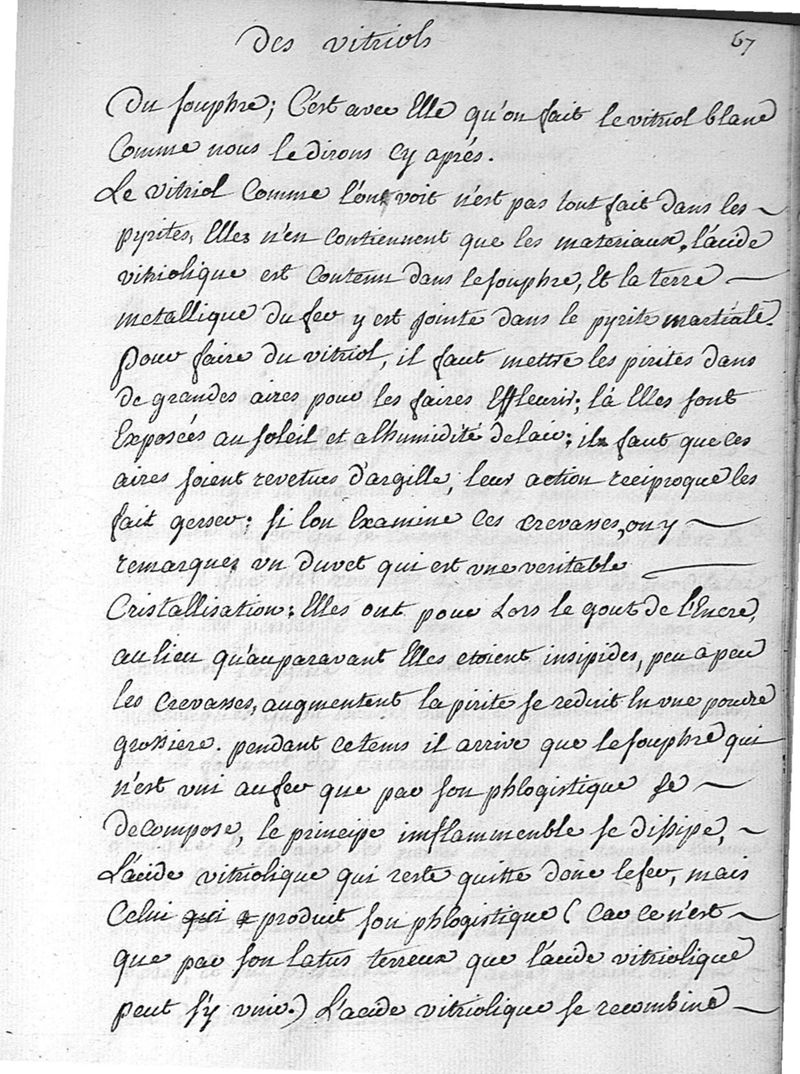 Des vitriols 67
Du souphre; C'est avec Elle qu'on fait le vitriol blanc
Comme nous le dirons cy aprés.
Le vitriol Comme l'on voit n'est pas tout fait dans les
pyrites, Elles n'en contiennent que les materiaux, l'acide
vitriolique est Contenu dans le souphre, Et la terre
metallique du fer y est jointe dans le pyrite martiale.
pour faire du vitriol, il faut mettre les pirites dans
de grandes aires pour les faires Effleurir; là Elles sont
Exposées au soleil et a lhumidité de lair; il faut que ces
aires soient revetues d'argille, leur action reciproque les
fait gerser: si lon Examine ces crevasses, on y
remarques un duvet qui est une veritable
Cristallisation: Elles ont pour Lors le gout de l'Encre,
au lieu qu'auparavant Elles etoient insipides, peu a peu
les Crevasses, augmentent la pirite se reduit En une poudre
grossiere. pendant ce tems il arrive que le souphre qui
n'est uni au fer que par son phlogistique se
decompose, le principe imflammenble se dissipe,
L'acide vitriolique qui reste quitte donc le fer, mais
Celui qui produit son phlogistique (Car ce n'est
que par son latus terreux que l'acide vitriolique
peut s'y unir.) L'acide vitriolique se recombine